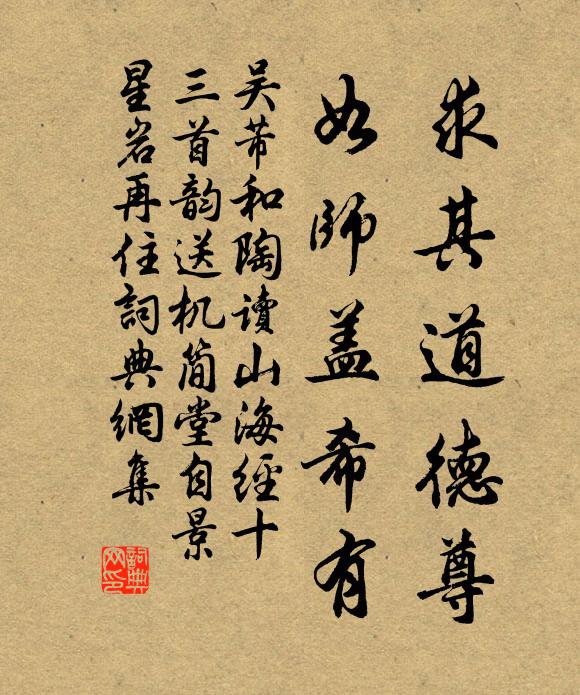 求其道德尊
如師盖希有
吴芾和陶讀山海經十
三首韵送机简堂自景
星岩再住詞典網集
詞典网印